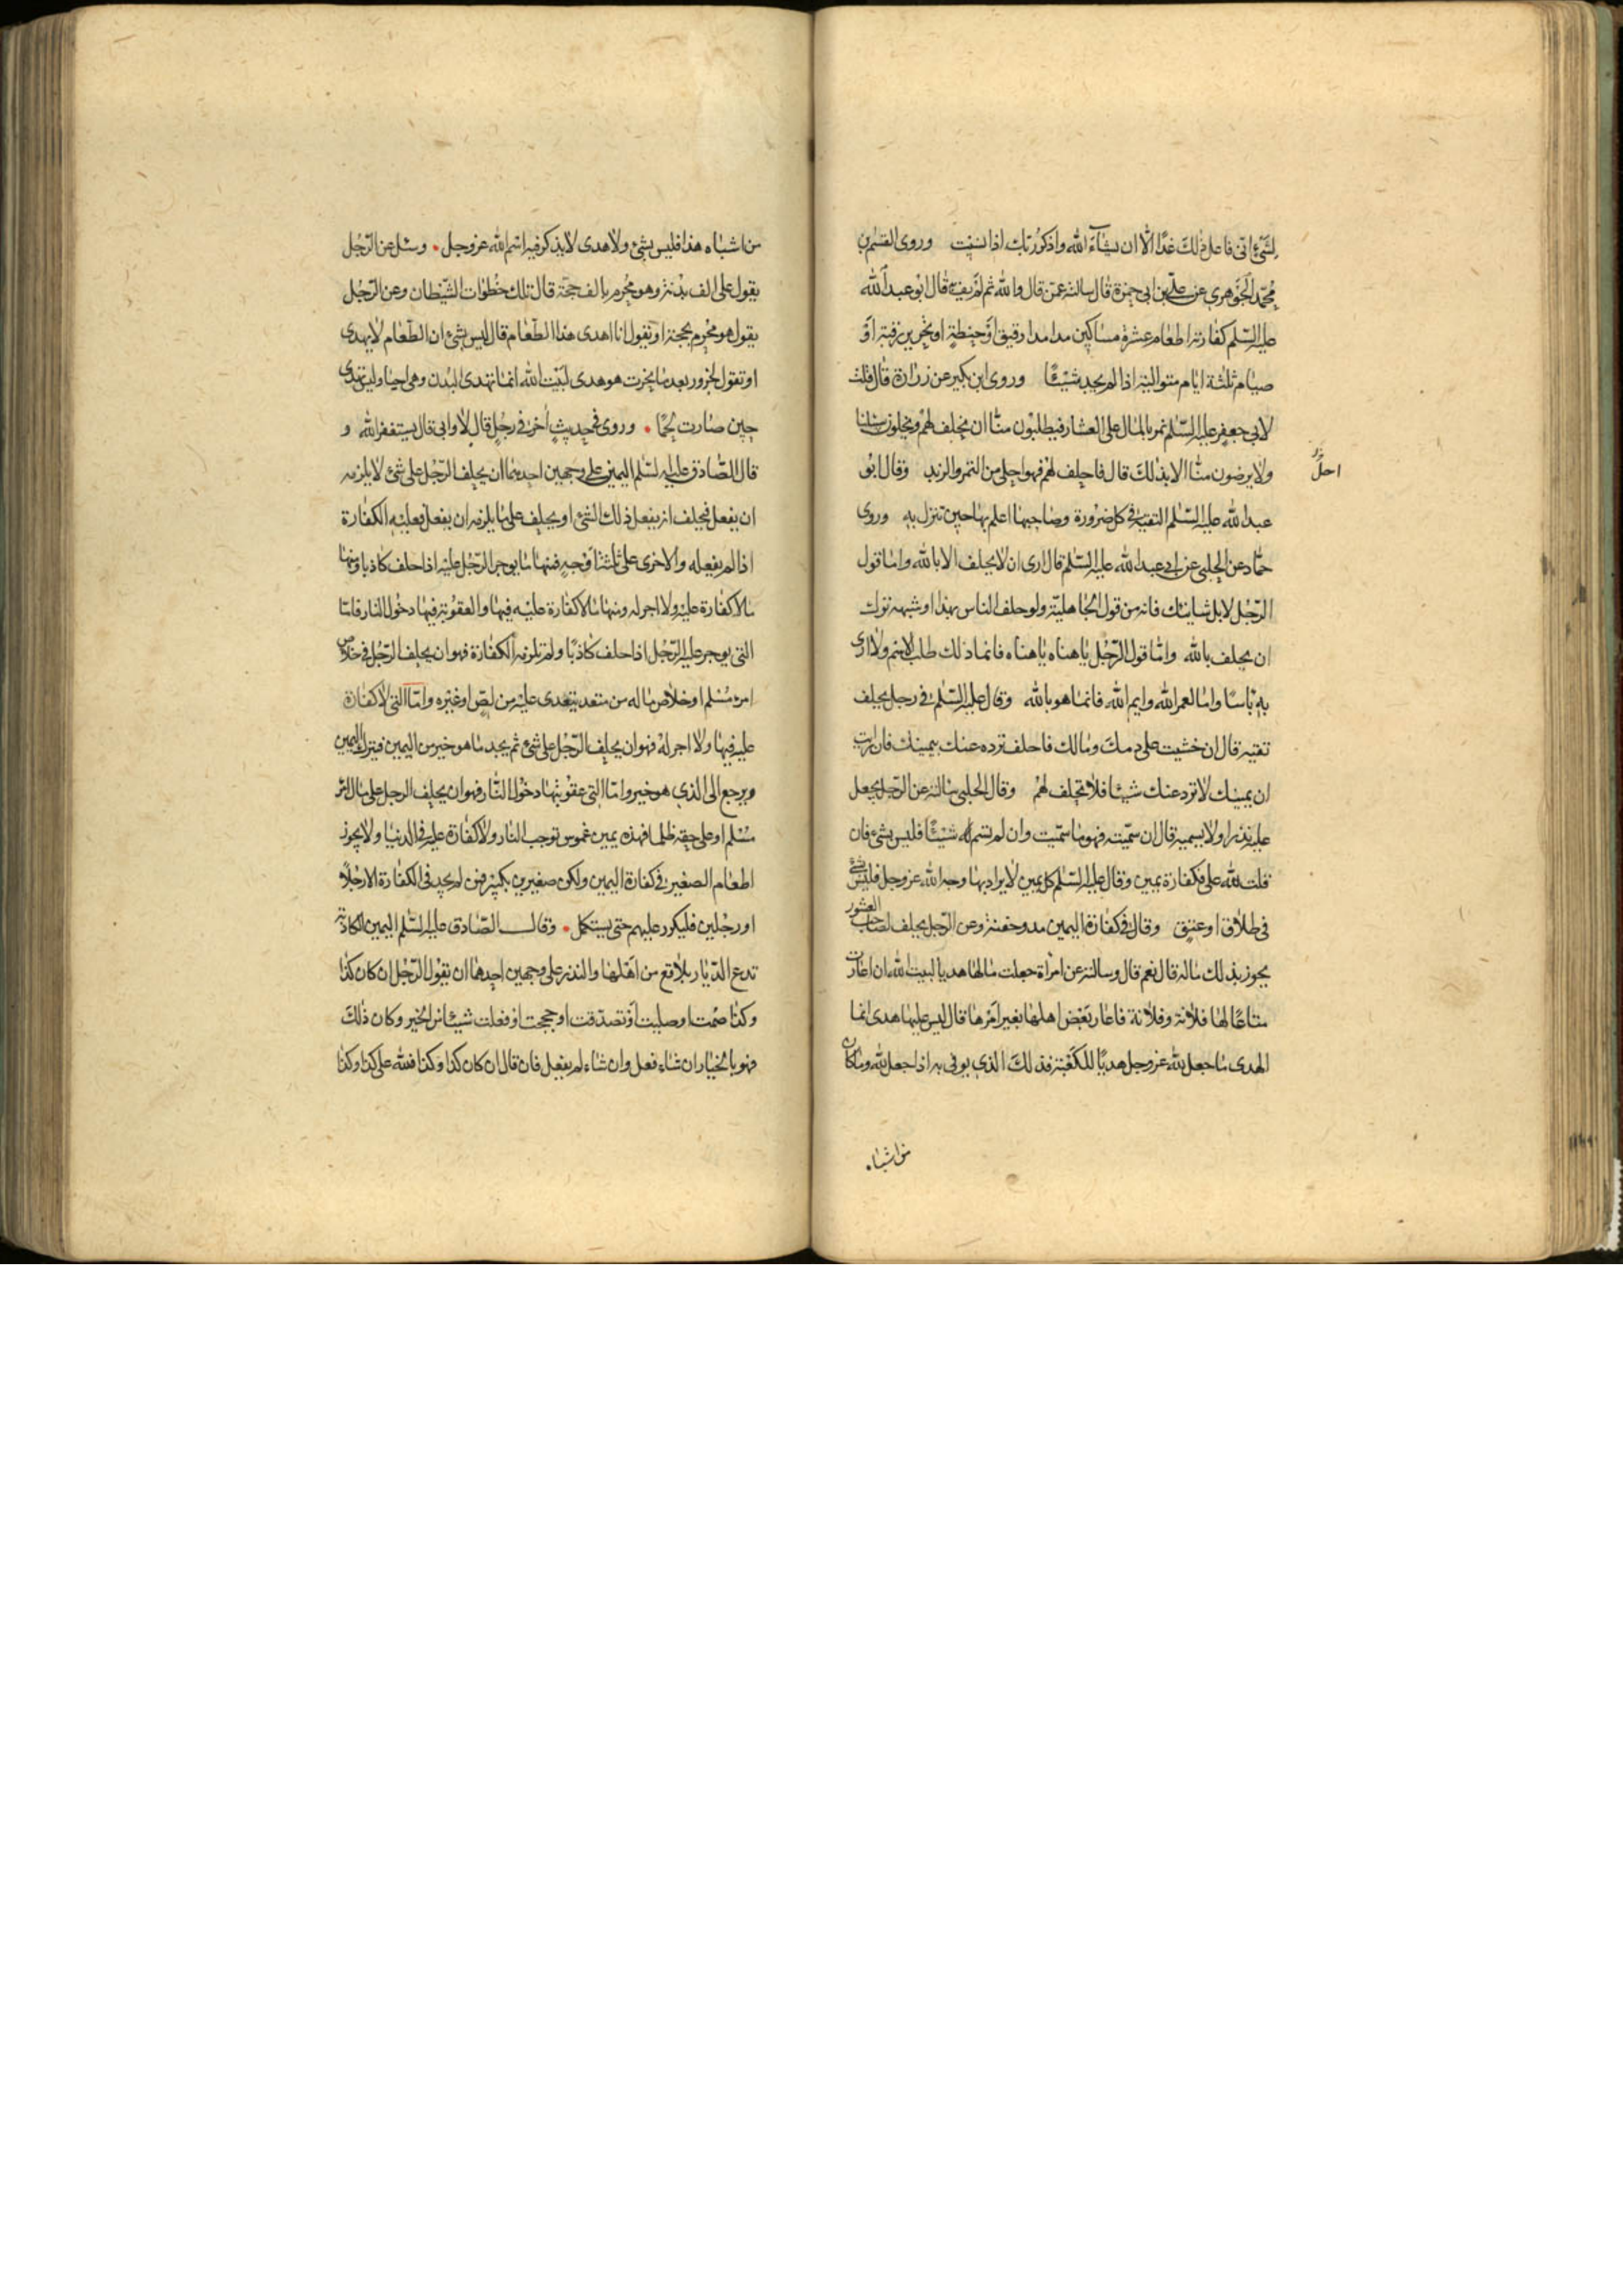 لِشَىْءٍ انّى فاعل ذلك غدًا الّا ان يشآء الله واذكر ربّك اذا نسيت وروى القسم بن
محمّد الجوهرى عن علىّ بن ابى حمزة قال سالته عمّن قال والله ثم لم يف قال ابو عبد الله
عليه السّلم كفارته اطعام عشرة مساكين مدا مدا دقيق او حنطة او تحرير رقبة او
صيام ثلثة ايام متوالية اذا لم يجد شيئًا وروى ابن بكير عن زرارة قال قلت
لابى جعفر عليه السّلم نمر بالمال على العشار فيطلبون منّا ان نحلف لهم ويخلون سبيلنا
ولا يرضون منّا الا بذلك قال فاحلف لهم فهو احلى من التمر والزبد وقال ابو
احلّ
عبد الله عليه السّلم التقيّة فى كل ضرورة وصاحبها اعلم بها حين تنزل به وروى
حمّاد عن الحلبى عن ابى عبد الله عليه السّلم قال ارى ان لا يحلف الا بالله واما قول
الرّجل لا بل شانئك فانه من قول الجاهليّة ولو حلف الناس بهذا وشبهه ترك
ان يحلف بالله وامّا قول الرّجل يا هناه يا هناه فانما ذلك طلب الاسم ولا ارى
به باسًا واما لعمر الله وايم الله فانما هو بالله وقال عليه السّلم فى رجل يحلف
تقية قال ان خشيت على دمك ومالك فاحلف ترده عنك بيمينك فان رايت
ان يمينك لا ترد عنك شيئا فلا تحلف لهم وقال الحلبى سالته عن الرّجل يجعل
عليه نذرا ولا يسميه قال ان سمّيته فهو ما سمّيت وان لم تسم شيئًا فليس بشىء فان
قلت لله علىّ فكفارة يمين وقال عليه السّلم كل يمين لا يراد بها وجه الله عز وجل فليس بشئ
فى طلاق او عتق وقال فى كفارة اليمين مد وحفنة وعن الرّجل يحلف لصاحب العشور
يجوز بذلك ماله قال نعم قال وسالته عن امراة جعلت مالها هديا لبيت الله ان اعارت
متاعًا لها فلانة وفلانة فاعار بعض اهلها بغير امرها قال ليس عليها هدى انما
الهدى ما جعل لله عز وجل هديًا للكعبة فذلك الذى يوفى به اذا جعل لله وما كان
من اشباه
من اشباه هذا فليس بشئ ولا هدى لا يذكر فيه اسم الله عز وجل وسئل عن الرّجل
يقول علىّ الف بدنة وهو محرم بالف حجّة قال تلك خطوات الشّيطان وعن الرّجل
يقول هو محرم بحجة او يقول انا اهدى هذا الطّعام قال ليس بشئ ان الطّعام لا يهدى
او تقول لجزور بعد ما نحرت هو هدى لبيت الله انما تهدى البدن وهى احياء وليس تهدى
حين صارت لحمًا وروى فى حديث آخر فى رجل قال لا وابى قال يستغفر الله و
قال الصّادق عليه السّلم اليمين على وجهين احديهما ان يحلف الرّجل على شئ لا يلزمه
ان يفعل فيحلف انه يفعل ذلك الشئ او يحلف على ما يلزمه ان يفعل فعليه الكفارة
اذا لم يفعله والاخرى على ثلثة اوجه فمنها ما يوجر الرّجل عليه اذا حلف كاذبا ومنها
ما لا كفارة عليه ولا اجر له ومنها ما لا كفارة عليه فيها والعقوبة فيها دخول النار فامّا
التى يوجر عليها الرّجل اذا حلف كاذبًا ولم تلزمه الكفارة فهو ان يحلف الرّجل فى خلاص
امرئ مسلم او خلاص ماله من متعد يتعدى عليه من لص او غيره وامّا التى لا كفارة
عليه فيها ولا اجر له فهو ان يحلف الرّجل على شئ ثم يجد ما هو خير من اليمين فيترك اليمين
ويرجع الى الذى هو خير وامّا التى عقوبتها دخول النّار فهو ان يحلف الرجل على مال امرئ
مسلم او على حقه ظلما فهذه يمين غموس توجب النار ولا كفارة عليه فى الدنيا ولا يجوز
اطعام الصغير فى كفارة اليمين ولكن صغيرين بكبير فمن لم يجد فى الكفارة الا رجلًا
او رجلين فليكرر عليهم حتى يستكمل وقال الصّادق عليه السّلم اليمين الكاذبة
تدع الدّيار بلاقع من اهلها والنذر على وجهين احدهما ان يقول الرّجل ان كان كذا
وكذا صمت او صليت او تصدقت او حججت او فعلت شيئا من الخير وكان ذلك
فهو بالخيار ان شاء فعل وان شاء لم يفعل فان قال ان كان كذا وكذا فلله على كذا وكذا